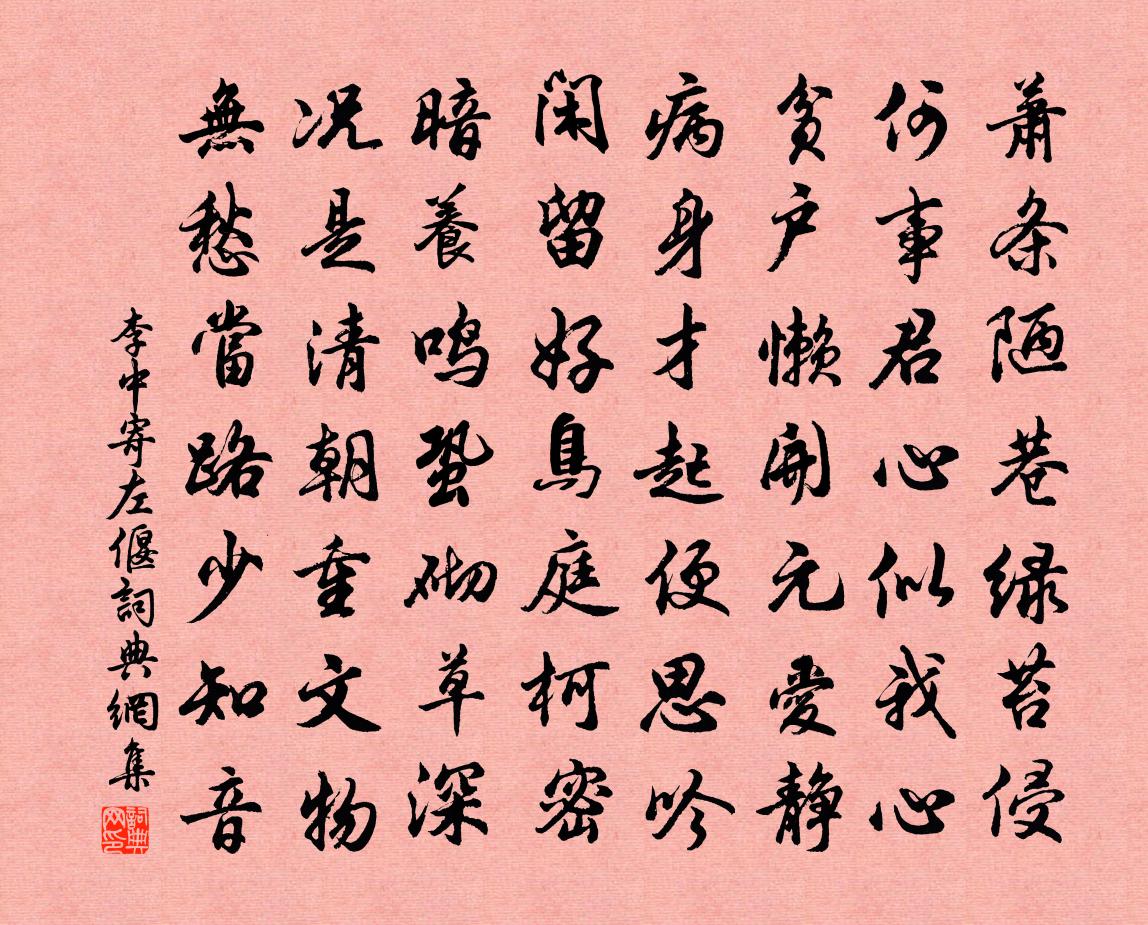 萧条陋巷绿苔侵
何事君心似我心
贫户懒开元爱静
病身才起便思吟
闲留好鳥庭柯密
暗養鸣蛩砌草深
况是清朝重文物
無愁當路少知音
李中寄左偃詞典網集
詞典网印